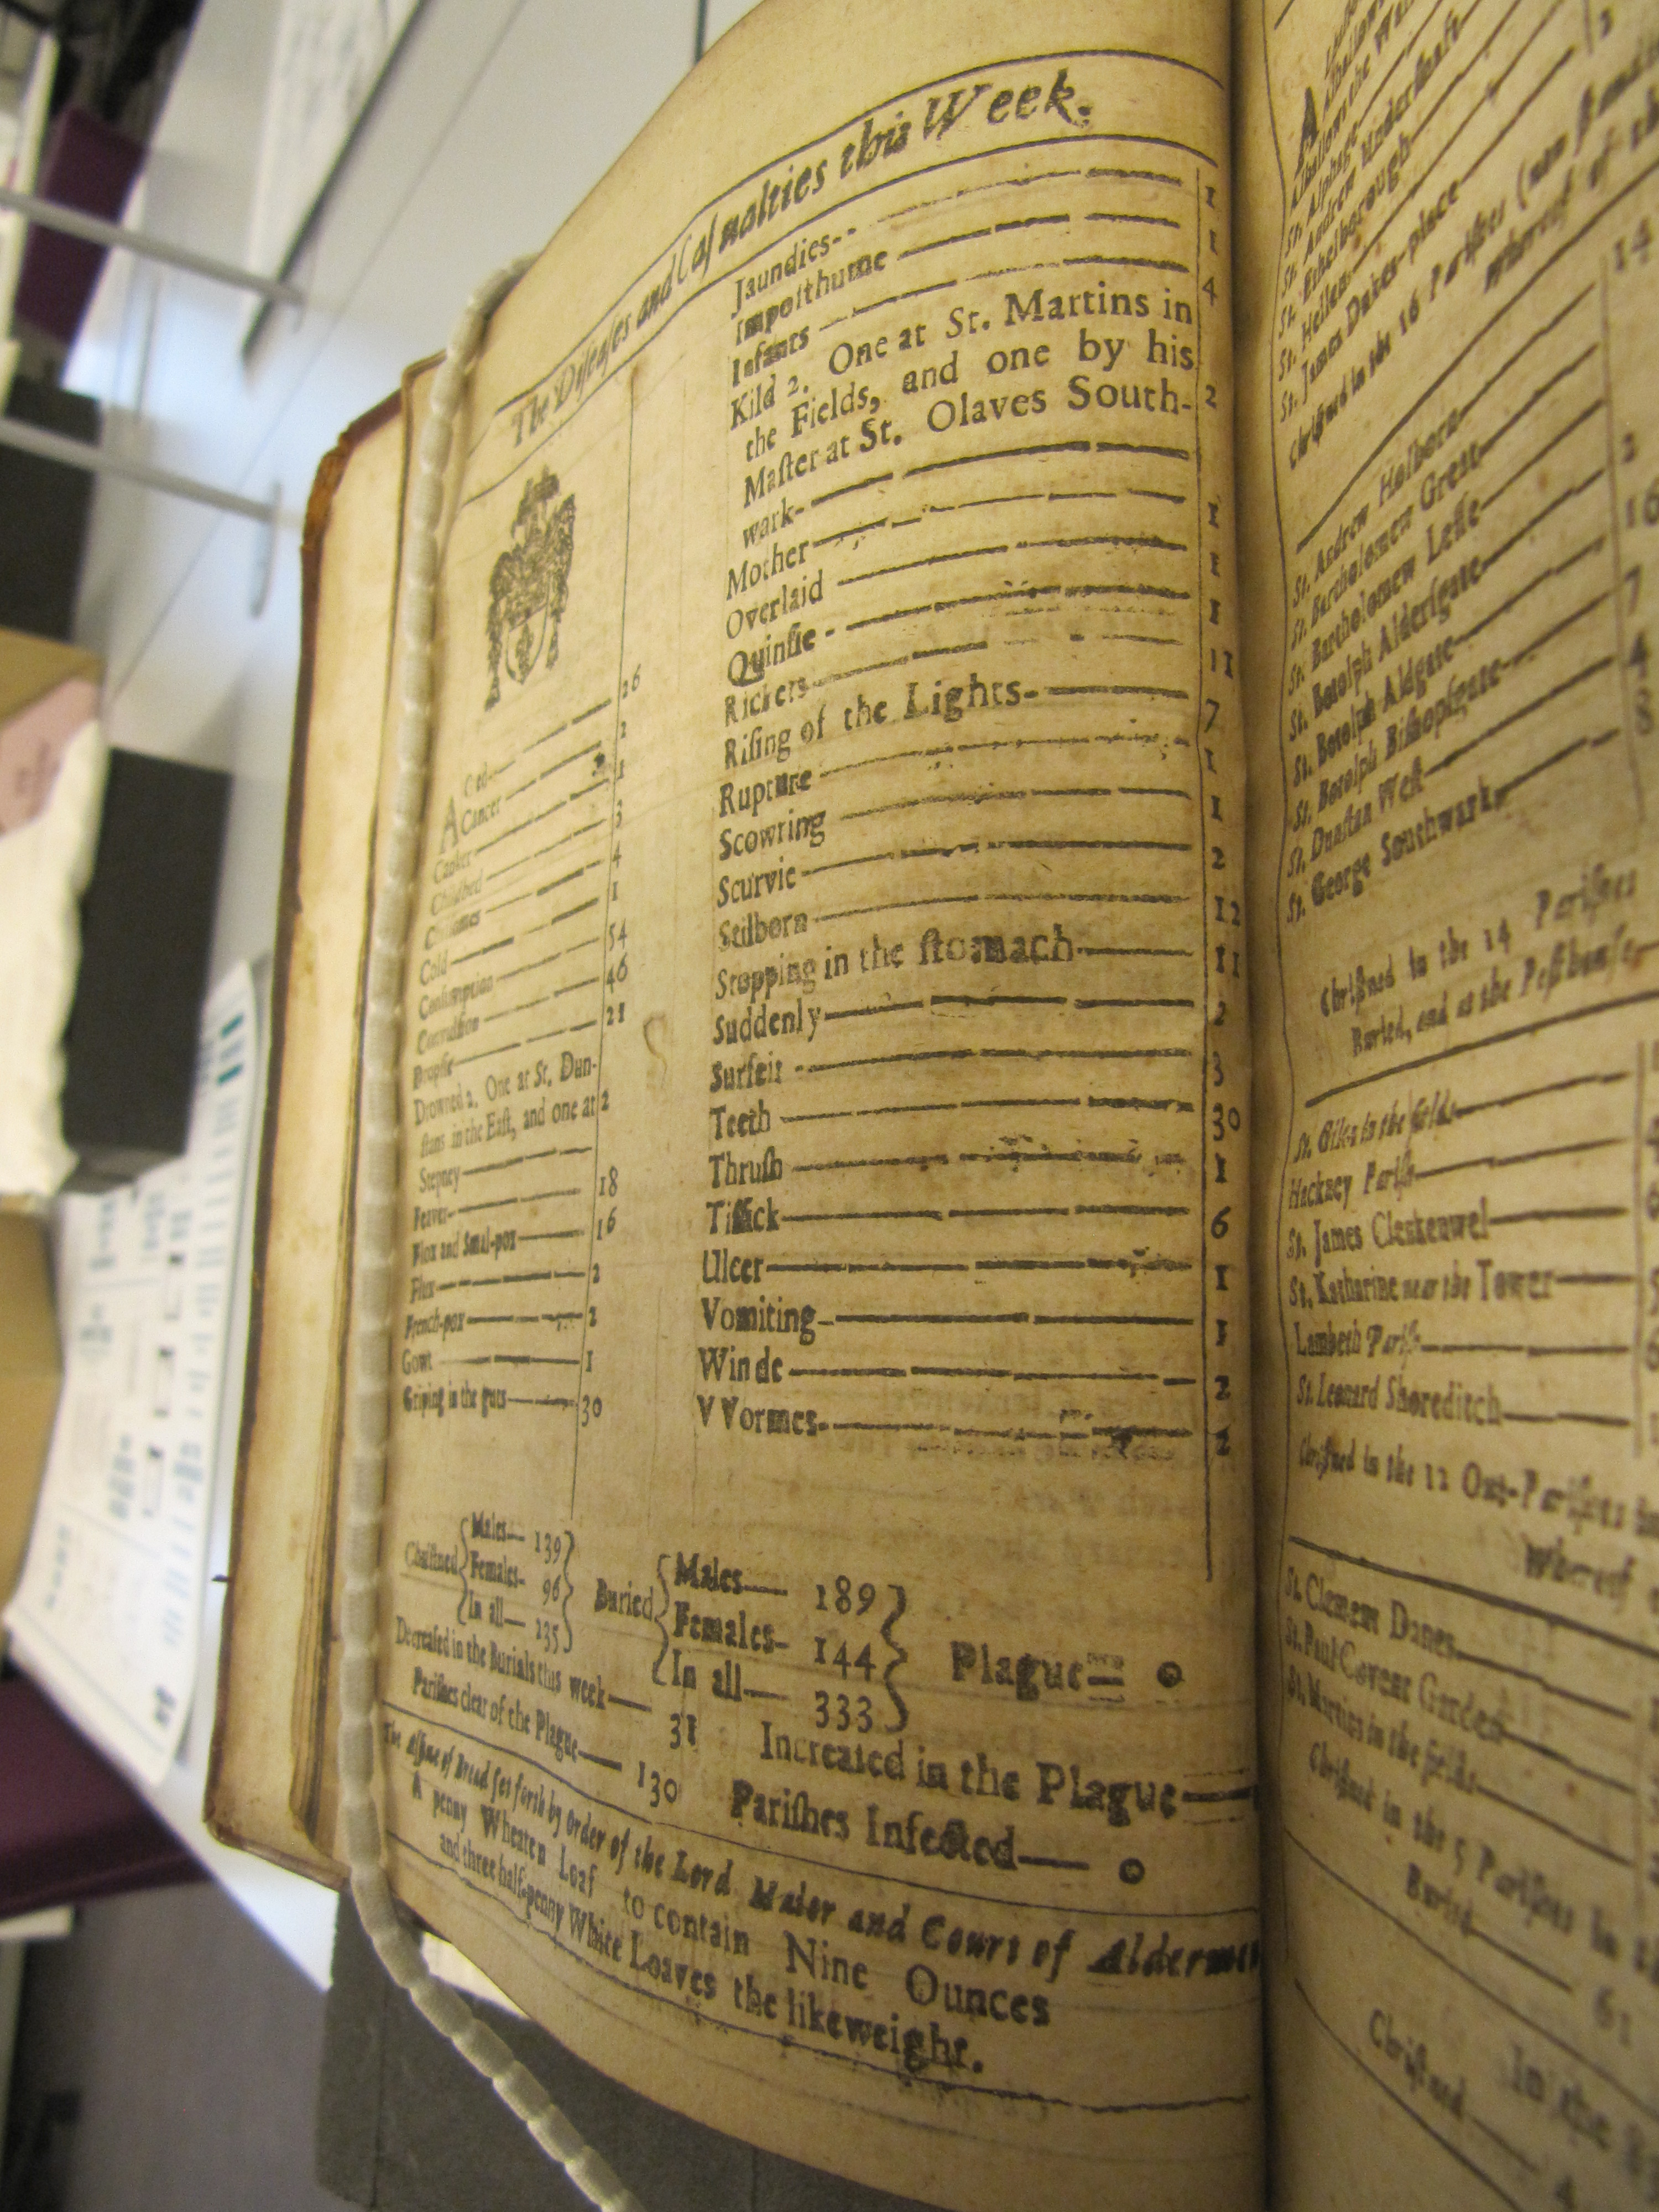 The Diseases and Casualties this Week.
Aged 26
Cancer 2
Canker 1
Childbed 3
Chrisomes 4
Cold 1
Consumption 54
Convulsion 46
Dropsie 21
Drowned 2. One at St. Dun-
stans in the East, and one at 2
Stepney
Feaver 18
Flox and Smal-pox 16
Flux 2
French-pox 2
Gowt 1
Griping in the guts 30
Jaundies 1
Imposthume 1
Infants 4
Kild 2. One at St. Martins in
the Fields, and one by his
Master at St. Olaves South- 2
wark
Mother 1
Overlaid 1
Quinsie 1
Rickets 11
Rising of the Lights 7
Rupture 1
Scowring 1
Scurvie 2
Stilborn 12
Stopping in the stomach 11
Suddenly 2
Surfeit 3
Teeth 30
Thrush 1
Tissick 6
Ulcer 1
Vomiting 1
Winde 2
VVormes 2
Christned
Males 139
Females 96
In all 235
Buried
Males 189
Females 144
In all 333
Plague 0
Decreased in the Burials this week 31
Increased in the Plague
Parishes clear of the Plague 130
Parishes Infected 0
The Assize of Bread set forth by Order of the Lord Maior and Court of Aldermen
A penny Wheaten Loaf to contain Nine Ounces
and three half-penny White Loaves the like weight.
St. Alphage
St. Andrew Undershaft
St. Ethelborough
St. Hellen
St. James Dukes-place
Christned in the 16 Parishes
Whereof of the
St. Andrew Holborn 14
St. Bartholomew Great
St. Bartholomew Lesse
St. Botolph Aldersgate 2
St. Botolph Aldgate 16
St. Botolph Bishopsgate 7
St. Dunstan West 4
St. George Southwark 8
Christned in the 14 Parishes
Buried, and at the Pesthouse
St. Giles in the fields
Hackney Parish
St. James Clerkenwel
St. Katharine near the Tower
Lambeth Parish
St. Leonard Shoreditch
Christned in the 12 Out-Parishes in
Whereof
St. Clement Danes
St. Paul Covent Garden
St. Martins in the fields
Christned in the 5 Parishes in
Buried 61
In the
Christned 4